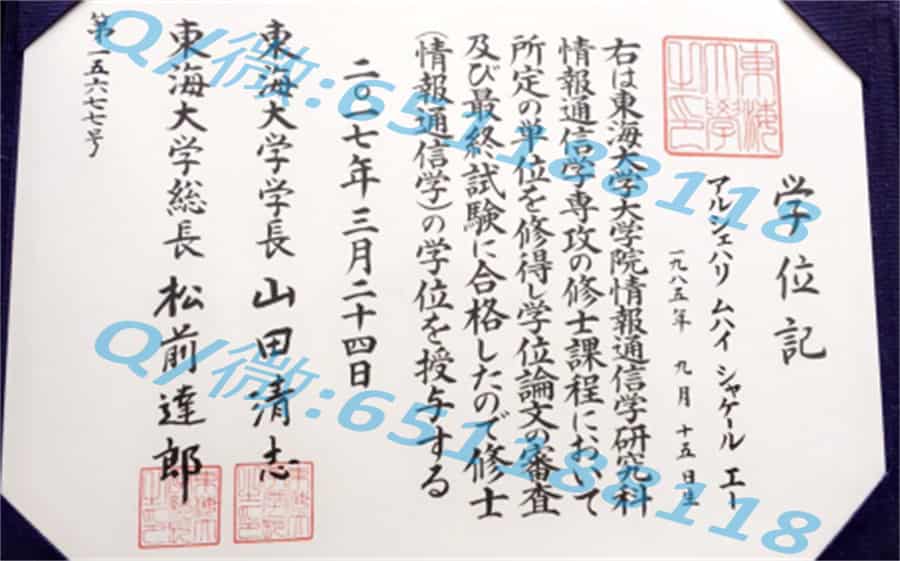 学位記
アルシェハリ ムハイ シャケール エー
一九八五年 九月 十五日生
右は東海大学大学院情報通信学研究科
情報通信学専攻の修士課程において
所定の単位を修得し学位論文の審査
及び最終試験に合格したので修士
(情報通信学)の学位を授与する
二〇一七年三月二十四日
東海大学学長 山田清志
東海大学総長 松前達郎
第一五六七七号
東海大学之印
Q/微:651188118
Q/微:651188118